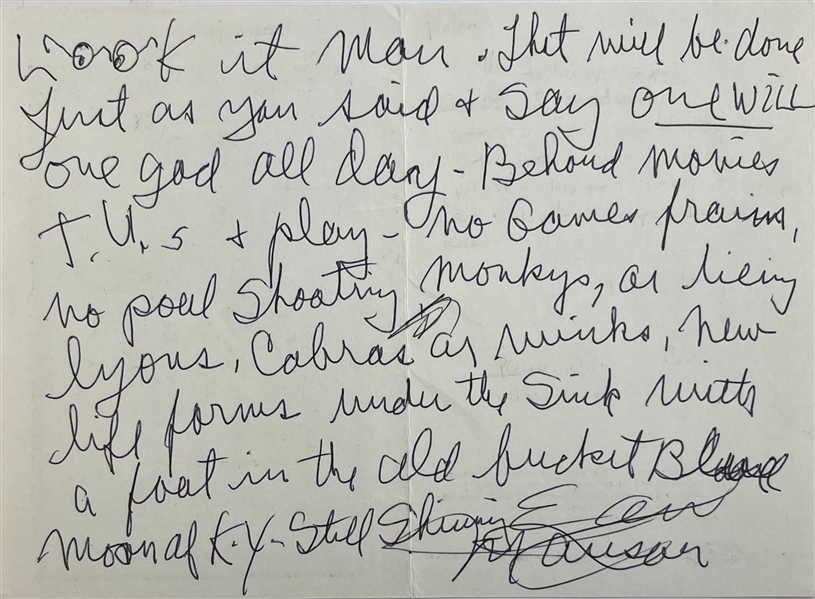 Look it Man. Thet will be done
Just as you said & Say one WILL
one god all day - Behond movies
T.V.s & play - no Games
no pool Shooting monkys, or
lyons, Cobras or winks, new
life forms under the Sink with
a foat in the old bucket
moon of K.Y - Still Shining
Manson